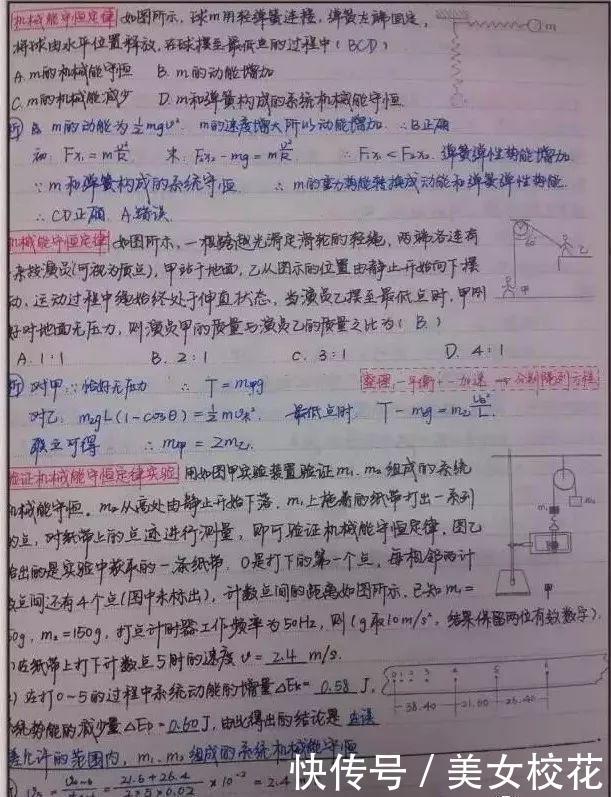 机械能守恒定律 如图所示，球m用轻弹簧连接，弹簧左端固定，
将球由水平位置释放，在球摆至最低点的过程中（BCD）
A.m的机械能守恒 B.m的动能增加
C.m的机械能减少 D.m和弹簧构成的系统机械能守恒
m的动能为 m的速度增大所以动能增加 ∴B正确
初：Fx₁=m 末：Fx₂-mg=m ∴Fx₁<Fx₂. 弹簧弹性势能增加
∵m和弹簧构成的系统守恒 ∴m的重力势能转换成动能和弹簧弹性势能.
∴CD正确 A错误
机械能守恒定律 如图所示，一根跨越光滑定滑轮的轻绳，两端各连有
杂技演员(可视为质点)，甲站于地面，乙从图示的位置由静止开始向下摆
动，运动过程中绳始终处于伸直状态，当演员乙摆至最低点时，甲刚
好对地面无压力，则演员甲的质量与演员乙的质量之比为（B）
A. 1:1 B. 2:1 C. 3:1 D. 4:1
对甲：∵恰好无压力 ∴T=m甲g
对乙：m₂gL(1-cosθ)=½m 最低点时 T-mg=m₂
联立可得 ∴m甲=2m乙.
验证机械能守恒定律实验 用如图甲实验装置验证m₁、m₂组成的系统
机械能守恒。m₂从高处由静止开始下落，m₁上拖着的纸带打出一系列
的点，对纸带上的点迹进行测量，即可验证机械能守恒定律，图乙
给出的是实验中获取的一条纸带，0是打下的第一个点，每相邻两计
数点间还有4个点(图中未标出)，计数点间的距离如图所示，已知m₁=
50g，m₂=150g，打点计时器工作频率为50Hz，则(g取10m/s²，结果保留两位有效数字).
)在纸带上打下计数点5时的速度v=2.4 m/s.
)在打0~5的过程中系统动能的增量△Ek=0.58 J，
系统势能的减少量△Ep=0.60J，由此得出的结论是 在误
差允许的范围内，m₁、m₂组成的系统机械能守恒
21.6+26.4
甲
m₁
m₂
0 1 2 3 4 5 6
38.40 21.60 26.40
快传号 / 美女校花